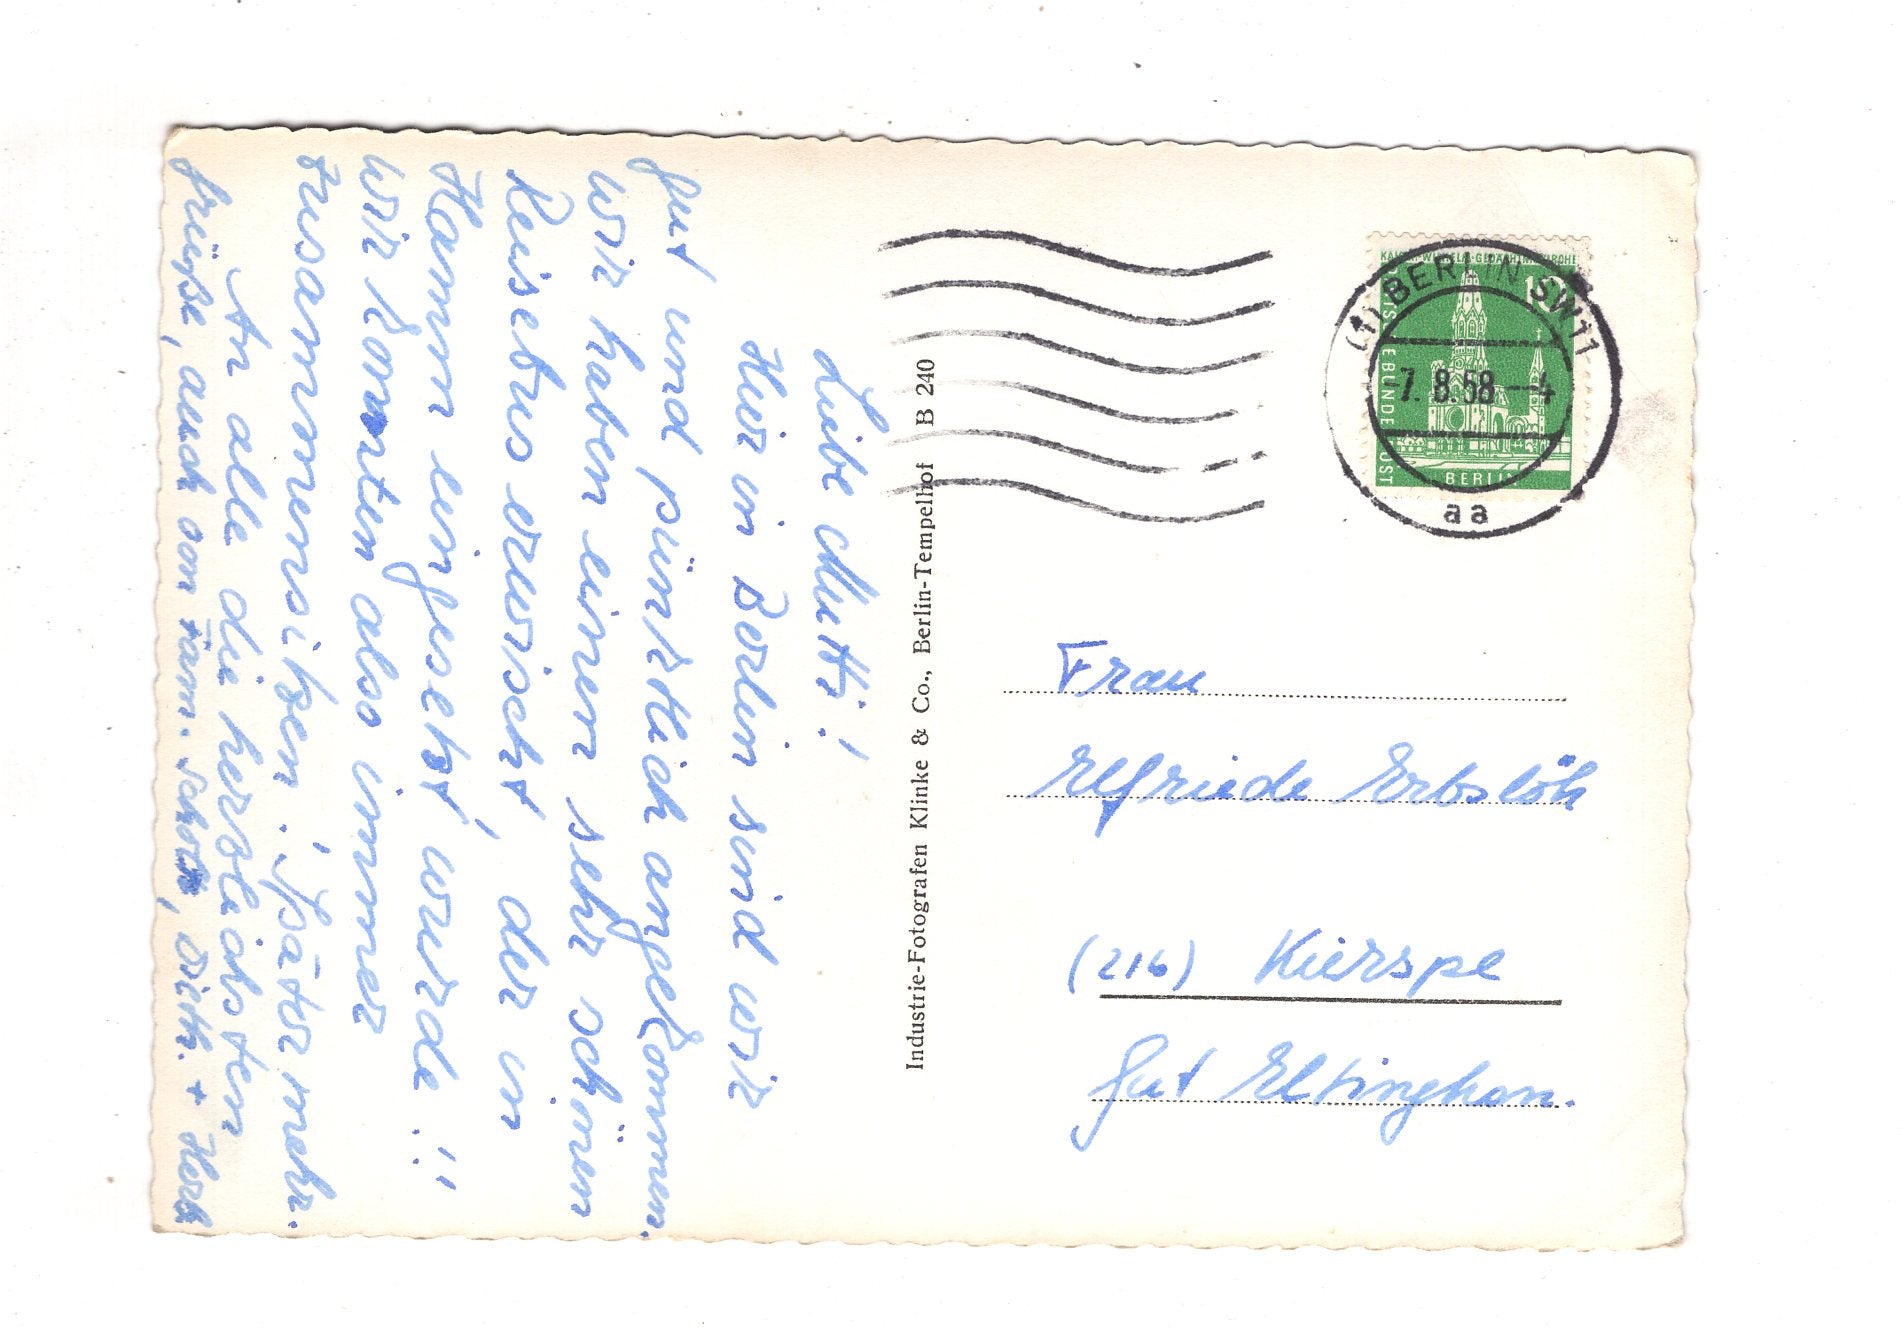 Liebe Mutti!
Hier in Berlin sind wir
gut und pünktlich angekommen.
Wir haben einen sehr schönen
Reisebus erwischt, der in
Hamm eingesetzt wurde!!
Wir konnten also immer
zusammensitzen! Später mehr.
An alle die herzlichsten
Grüße, auch von Fam.
Industrie-Fotografen Klinke & Co., Berlin-Tempelhof BB 240
KAISER-WILHELM-GEDÄCHTNISKIRCHE
10
DEUTSCHE BUNDESPOST
BERLIN
(1) BERLIN SW11
-7.8.58--4
aa
Frau
Elfriede Erbslöh
(216) Kierspe
Gut